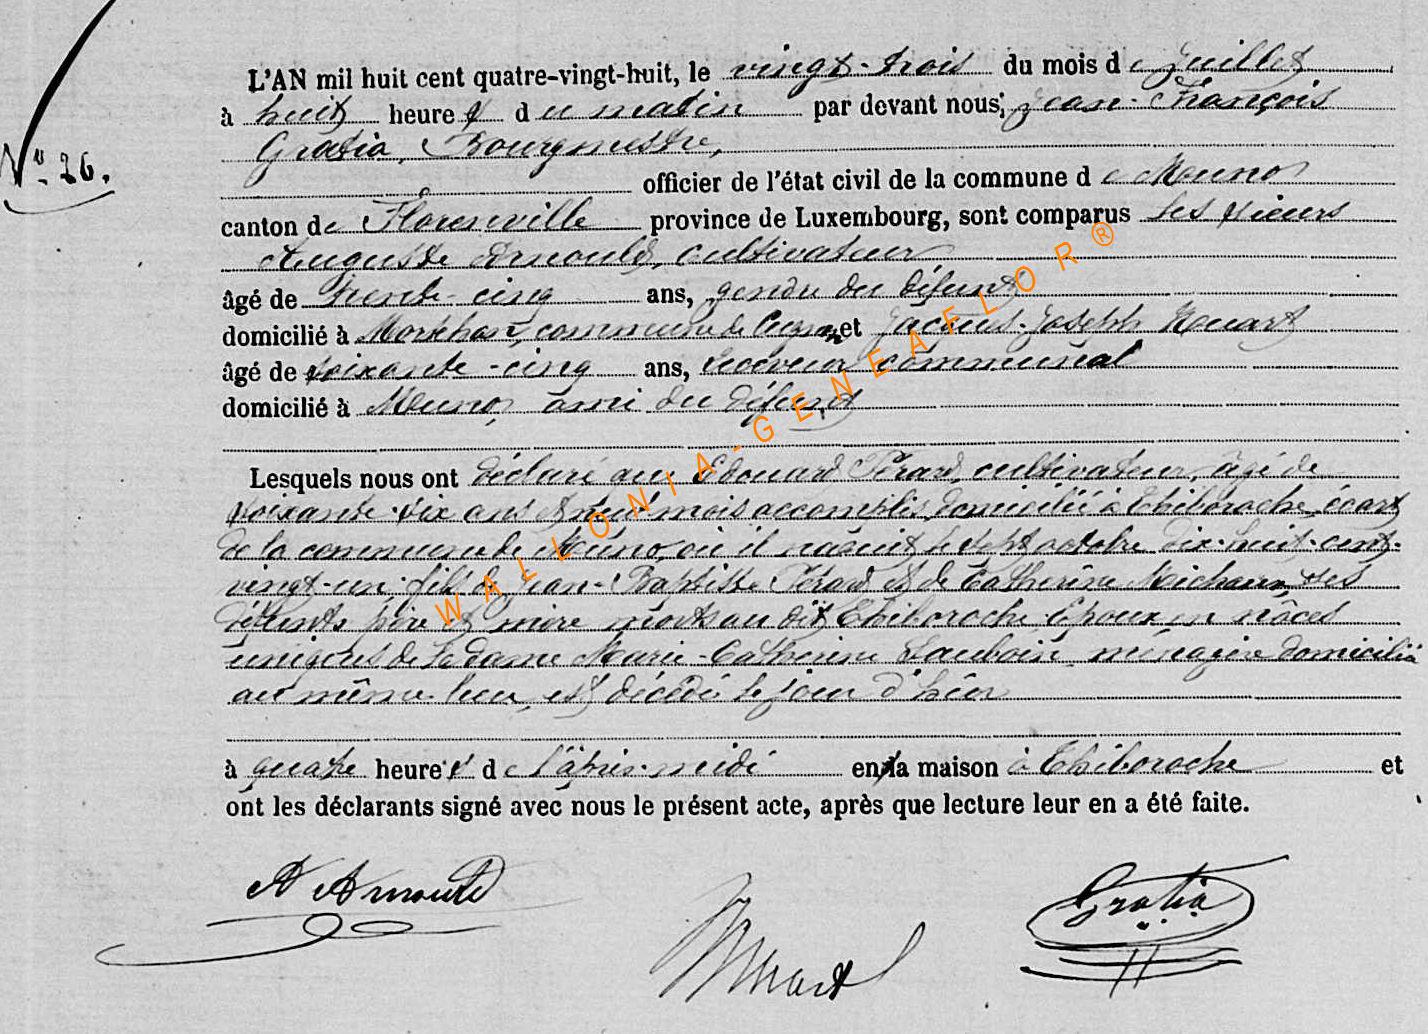 L'AN mil huit cent quatre-vingt-huit, le vingt-trois du mois de Juillet
à huit heures du matin par devant nous, Jean-François
Gratia, Bourgmestre,
Nº 26.
officier de l'état civil de la commune de Muno
canton de Florenville province de Luxembourg, sont comparus les sieurs
Auguste Arnould, cultivateur
âgé de trente-cinq ans, gendre du défunt
domicilié à Mortehan, commune de Cugnon et Jacques-Joseph
âgé de soixante-cinq ans, receveur communal
domicilié à Muno, ami du défunt
Lesquels nous ont déclaré que Edouard Pérard, cultivateur, âgé de
soixante-six ans et neuf mois accomplis, domicilié à Thiboroche, écart
de la commune de Muno, où il naquit le sept octobre dix-huit-cent-
vingt-un, fils de Jean-Baptiste Pérard et de Catherine Michaux, ses
défunts père et mère morts au dit Thiboroche. Epoux en nôces
uniques de la dame Marie-Catherine ménagère domiciliée
au même lieu, est décédé le jour d'hier
à quatre heures de l'après-midi en la maison à Thiboroche et
ont les déclarants signé avec nous le présent acte, après que lecture leur en a été faite.
A Arnould
Gratia
WALLONIA-GENEAFLOR®